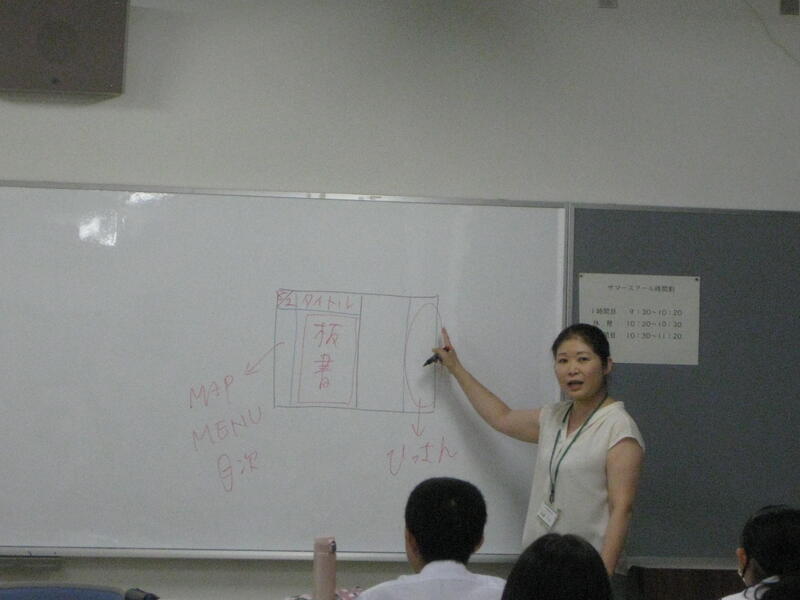 8/2 タイトル
板書
MAP
MENU
目次
ひっさん
サマースクール時間割
1時間目 9:30~10:20
休憩 10:20~10:30
10:30~11:20